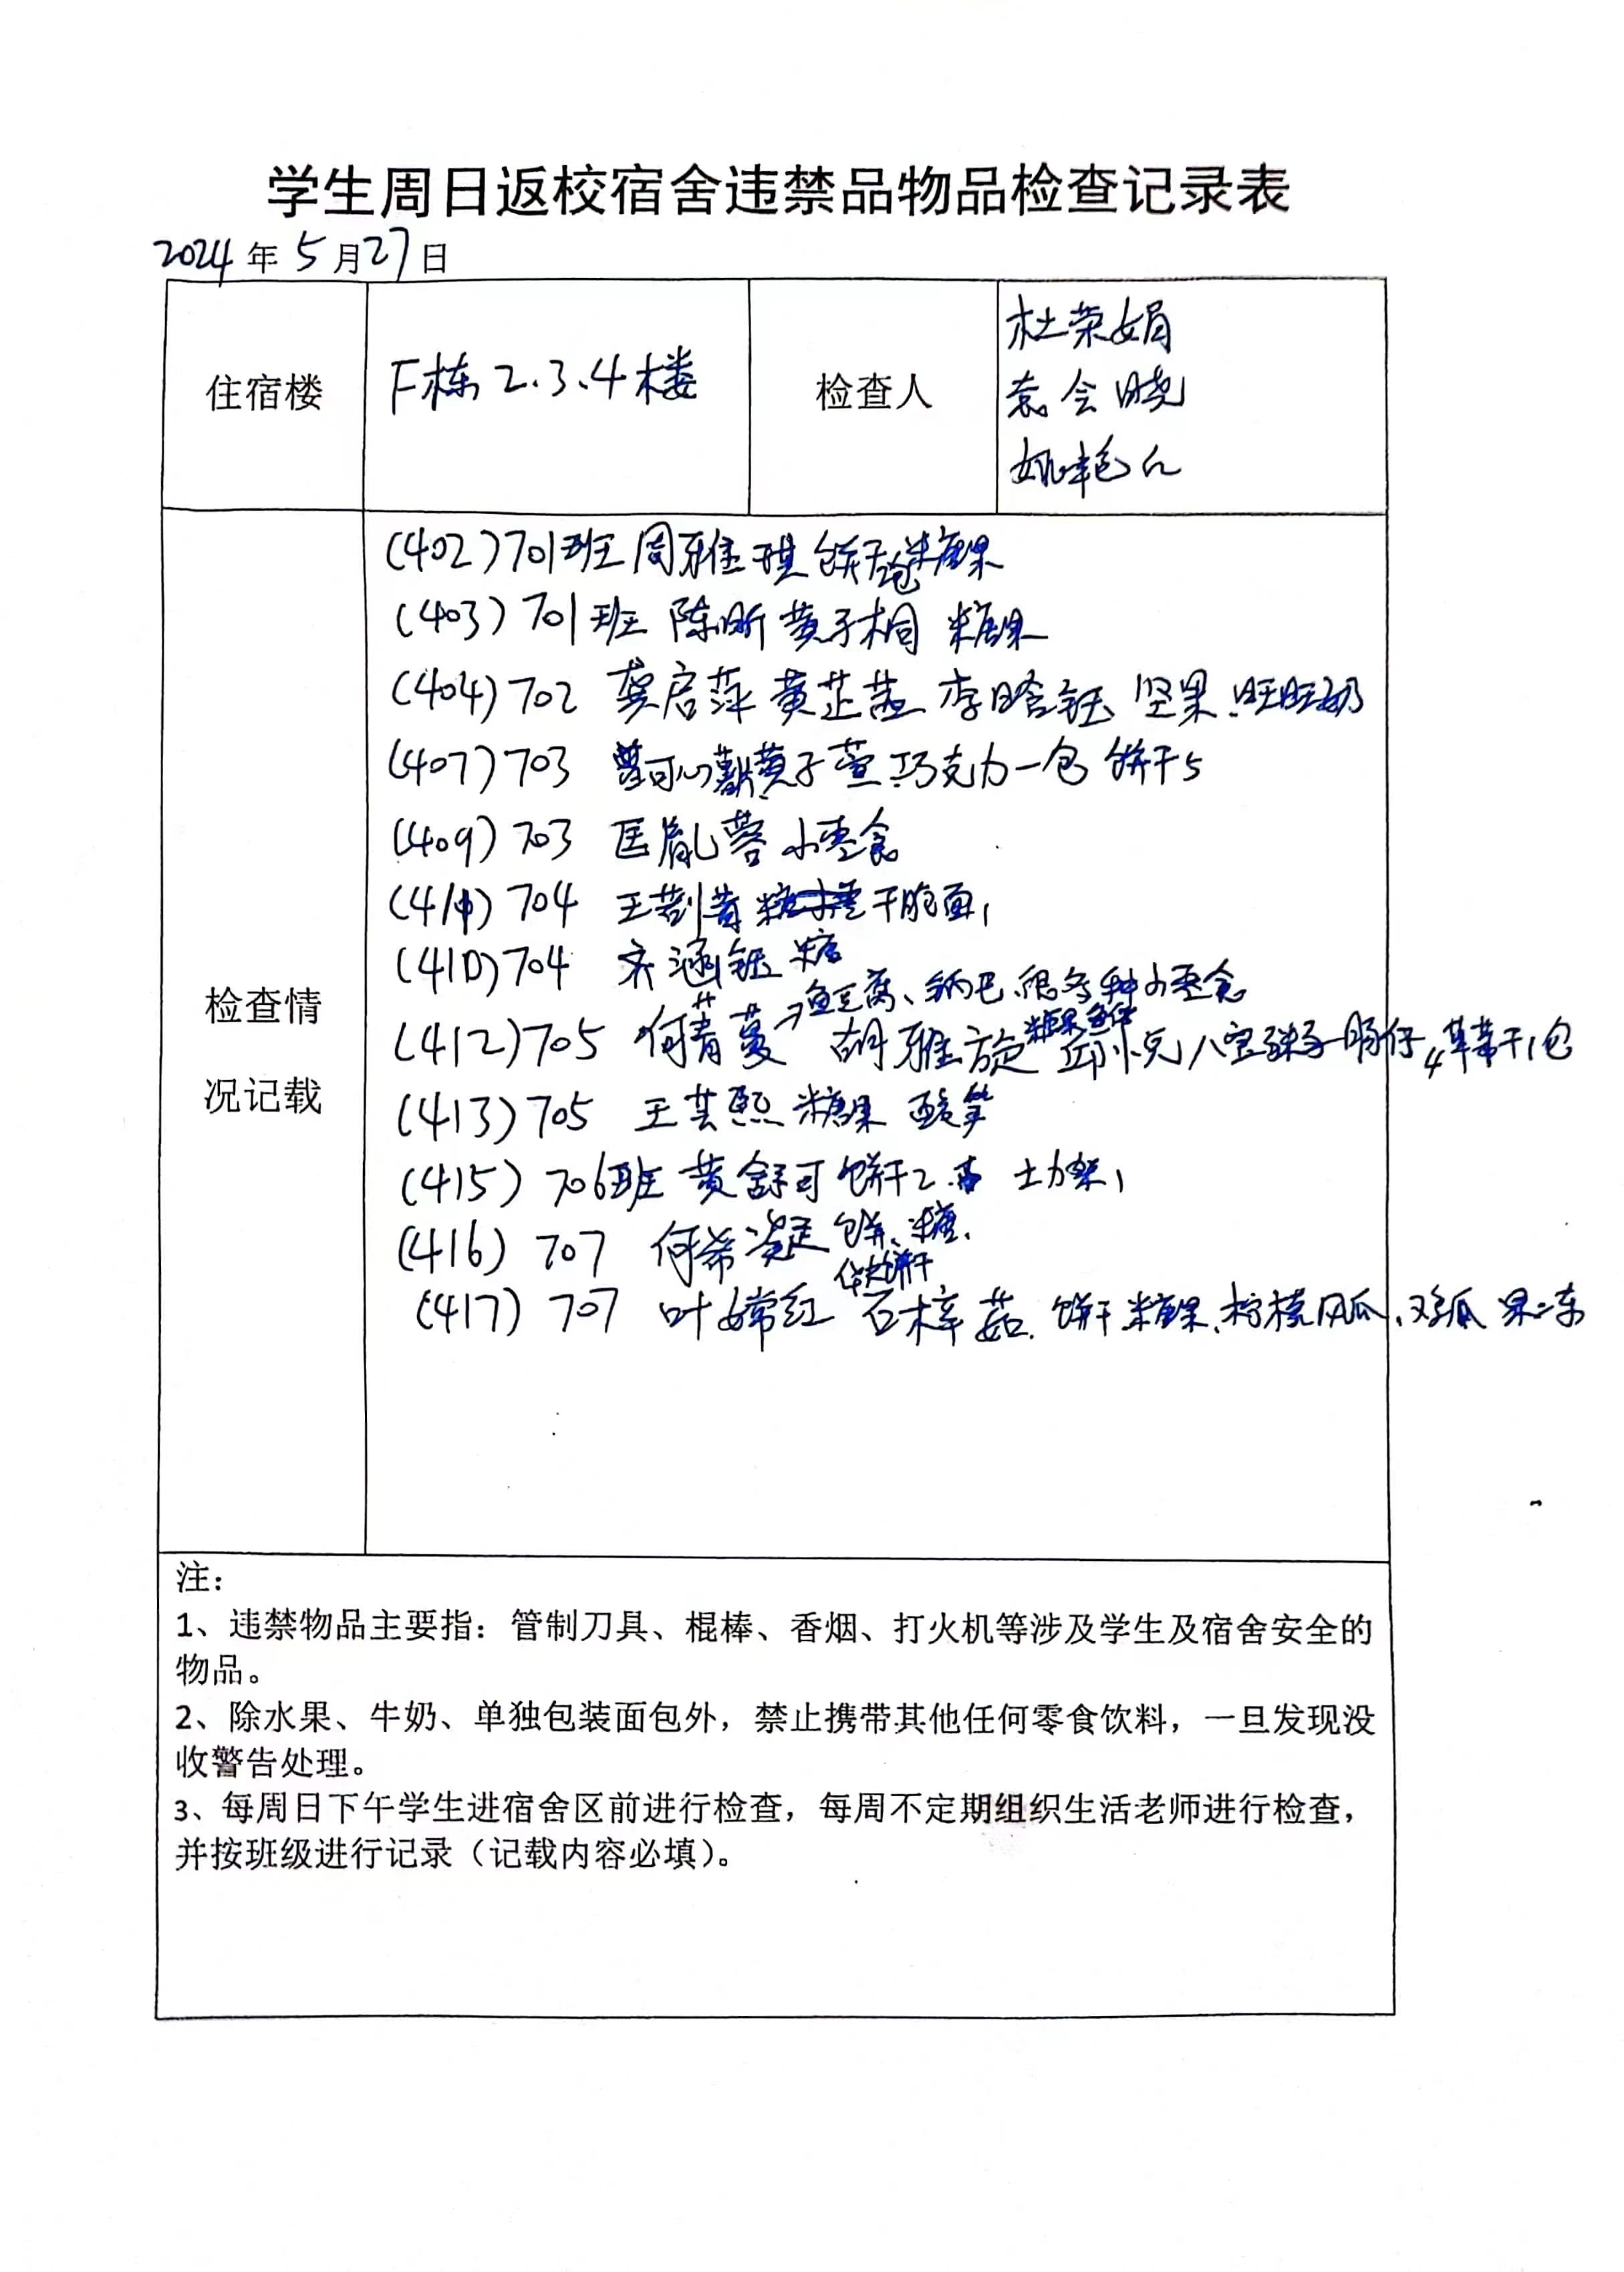 学生周日返校宿舍违禁品物品检查记录表
2024年5月27日
住宿楼
F栋2.3.4楼
检查人
杜荣娟
袁会晓
姚艳
检查情况记载
(402)701班 周雅琪 饼干 糖果
(403)701班 陈昕 黄子桐 糖果
(404)702 龚启萍 黄芷 李晗钰 坚果.旺旺奶
(407)703 曾可心 黄子萱 巧克力一包 饼干5
(409)703 匡胤蓉 小零食
704 王 干脆面1
(410)704 齐涵钰 糖
鱼豆腐、锅巴.很多种小零食
(412)705 何菁蔓 胡雅旋 糖果 邱 八宝粥 肠仔4 苹果干1包
(413)705 王芸熙 糖果 酸笋
(415)706班 黄舒可 饼干2. 士力架1
(416)707 何希凝 饼、糖.
饼干
(417)707 叶嫦红 石梓茹. 饼干 糖果.柠檬凤爪.鸡爪 果冻
注：
1、违禁物品主要指：管制刀具、棍棒、香烟、打火机等涉及学生及宿舍安全的
物品。
2、除水果、牛奶、单独包装面包外，禁止携带其他任何零食饮料，一旦发现没
收警告处理。
3、每周日下午学生进宿舍区前进行检查，每周不定期组织生活老师进行检查，
并按班级进行记录（记载内容必填）。